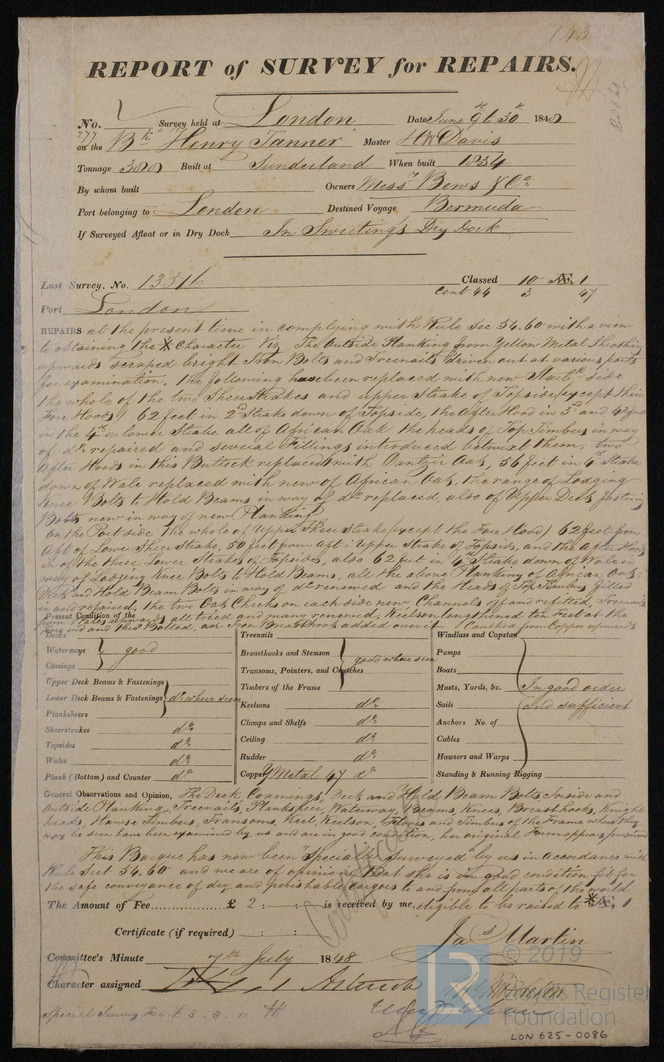 143
REPORT of SURVEY for REPAIRS.
No. Survey held at London Date June 9th & 30th 1848
277 on the Bk "Henry Tanner" Master H W Davis
Tonnage 388 Built at Sunderland When built 1834
By whom built Owners Messrs Bews & Co.
Port belonging to London Destined Voyage Bermuda
If Surveyed Afloat or in Dry Dock In Sweetings Dry Dock
Last Survey, No. 13516 Classed 10 Æ 1
Cont 44 3 47
Port London
REPAIRS at the present time in complying with Rule Sec 54.60 with a view
to obtaining the * Character Viz The Outside Planking from Yellow Metal Sheathing
upwards scraped bright Iron Bolts and Treenails driven out at various parts
for examination. The following have been replaced with new Starbd Side
the whole of the two Sheerstrakes and upper Strake of Topside (except their
Fore Hoods) 62 feet in 2d Strake down of Topside, the After Hood in 3d and 42 feet
in the 4th or lower Strake all of African Oak the heads of Top Timbers in way
of do repaired and several Fillings introduced betwixt them. two
After Hoods in this Buttock replaced with Dantzic Oak, 56 feet in 4th Strake
down of Wale replaced with new of African Oak, the range of Lodging
Knee Bolts to Hold Beams in way of do replaced, also of Upper Deck fastening
Bolts new in way of new Planking
On the Port side the whole of Upper Sheer Strake (except the Fore Hood) 62 feet from
Aft of Lower Sheer Strake, 50 feet from aft in Upper Strake of Topside, and the After Hoods
in of the three Lower Strakes of Topsides, also 62 feet in 4th Strake down of Wale in
way of Lodging Knee Bolts to Hold Beams, all the above Planking of African Oak
Deck and Hold Beam Bolts in way of do renewed and the Heads of Top Timbers filled
in and repaired, the two Oak Cheeks on each side new. Channels off and refitted, Treenails
from Wales upwards all tried and many renewed, Keelson lengthened ten feet at the
Present Condition of the
fore end and this Bolted, an Iron Breasthook added over it. Caulked from Copper upwards
Decks
Waterways good
Comings
Upper Deck Beams & Fastenings
Lower Deck Beams & Fastenings do where seen
Planksheers
Sheerstrakes do
Topsides do
Wales do
Plank (Bottom) and Counter do
Treenails
Breasthooks and Stemson good where seen
Transoms, Pointers, and Crutches
Timbers of the Frame
Keelsons do
Clamps and Shelfs do
Ceiling do
Rudder do
Copper Y Metal 47 do
Windlass and Capstan
Pumps
Boats
Masts, Yards, &c. In good order
Sails and sufficient
Anchors No. of
Cables
Hawsers and Warps
Standing & Running Rigging
General Observations and Opinion, The Deck Coamings, Deck and Hold Beam Bolts Inside and
Outside Planking, Treenails, Planksheer, Waterway, Beams, Knees, Breasthooks, Knight
heads, Hawse Timbers, Transoms, Keel, Keelson, Floors and Timbers of the Frame where they
may be seen have been examined by us and are in good condition, her original Form appears preserved
This Barque has now been "Specially Surveyed" by us in accordance with
Rule Sect 54.60 and we are of opinion that she is in good condition fit for
the safe conveyance of dry and perishable cargoes to and from all parts of the world
The Amount of Fee £ 2 : - : is received by me, eligible to be raised to * Æ 1
Certificate (if required) : :
Jas Martin
Committee's Minute 7th July 1848
Character assigned
Special Survey Fee £ 3. 3. 0
© 2019
LR
Lloyd's Register
Foundation
LON 625-0086